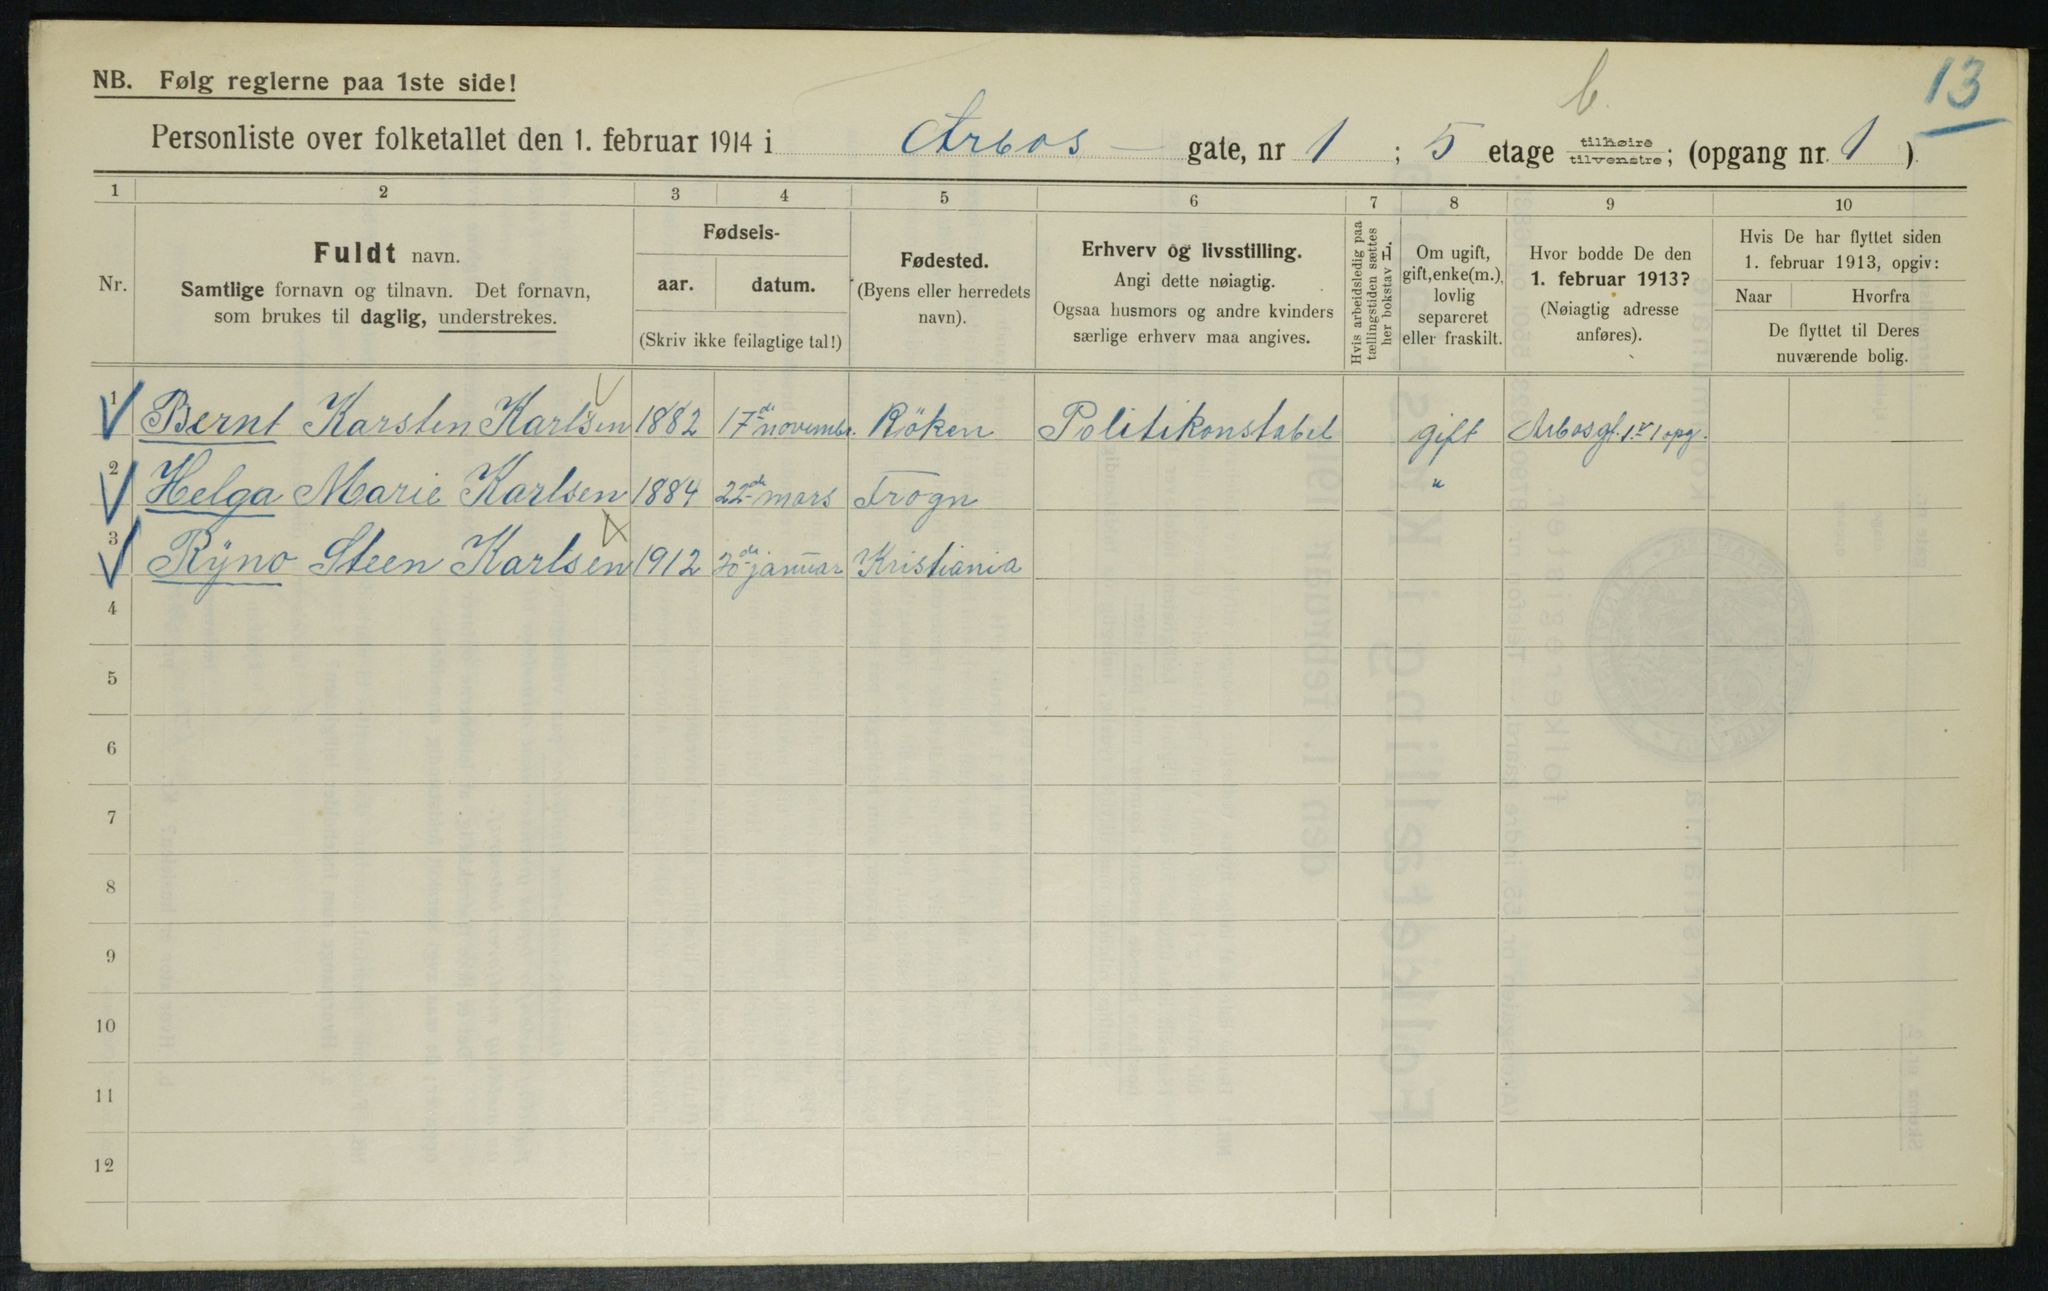 13
b.
NB. Følg reglerne paa 1ste side!
Personliste over folketallet den 1. februar 1914 i Arbos — gate, nr 1 ; 5 etage tilhøire tilvenstre; (opgang nr. 1 ).
1 2 3 4 5 6 7 8 9 10
Nr.
Fuldt navn.
Samtlige fornavn og tilnavn. Det fornavn,
som brukes til daglig, understrekes.
Fødsels-
aar. datum.
(Skriv ikke feilagtige tal!)
Fødested.
(Byens eller herredets
navn).
Erhverv og livsstilling.
Angi dette nøiagtig.
Ogsaa husmors og andre kvinders
særlige erhverv maa angives.
Hvis arbeidsledig paa
tællingstiden sættes
her bokstav L.
Om ugift,
gift, enke(m.),
lovlig
separeret
eller fraskilt.
Hvor bodde De den
1. februar 1913?
(Nøiagtig adresse
anføres).
Hvis De har flyttet siden
1. februar 1913, opgiv:
Naar Hvorfra
De flyttet til Deres
nuværende bolig.
1 Bernt Karsten Karlsen 1882 17de novembr. Röken Politikonstabel gift Arbosgt. 1 1 opg.
2 Helga Marie Karlsen 1884 22de mars Frogn "
3 Rÿno Steen Karlsen 1912 20de januar Kristiania
4
5
6
7
8
9
10
11
12